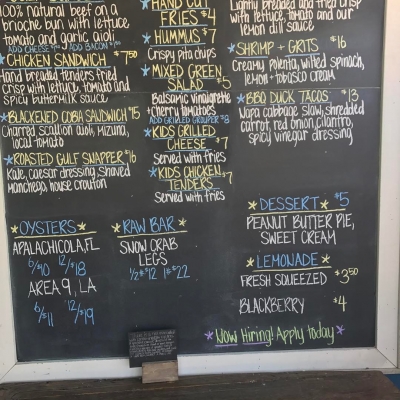 100% natural beef on a
brioche bun with lettuce
tomato and garlic aioli
* CHICKEN SANDWICH $7.50
Hand breaded tenders fried
crisp with lettuce, tomato and
spicy buttermilk sauce
* BLACKENED COBIA SANDWICH $15
Charred scallion aioli, mizuna,
local tomato
* ROASTED GULF SNAPPER $16
Kale, caesar dressing shaved
manchego, house crouton
* OYSTERS *
APALACHICOLA, FL
6/$10 12/$18
AREA 9, LA
6/$11 12/$19
* HAND CUT
FRIES $4
* HUMMUS $7
Crispy pita chips
* MIXED GREEN
SALAD $5
Balsamic vinaigrette
+ cherry tomatoes
ADD GRILLED GROUPER $8
* KIDS GRILLED
CHEESE $7
Served with fries
* KIDS CHICKEN
TENDERS $7
Served with fries
* RAW BAR *
SNOW CRAB
LEGS
1/2# $12 1# $22
Lightly breaded and fried crisp
with lettuce, tomato and our
lemon dill sauce
* SHRIMP + GRITS $16
Creamy polenta, wilted spinach,
lemon + tobasco cream
* BBQ DUCK TACOS $13
Napa cabbage slaw, shredded
carrot, red onion, cilantro,
spicy vinegar dressing
* DESSERT * $5
PEANUT BUTTER PIE,
SWEET CREAM
* LEMONADE *
FRESH SQUEEZED $3.50
BLACKBERRY $4
* Now Hiring! Apply today *